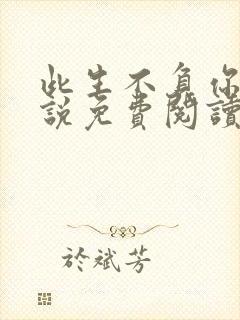 此生不負你
說免費閱讀
於斌芳